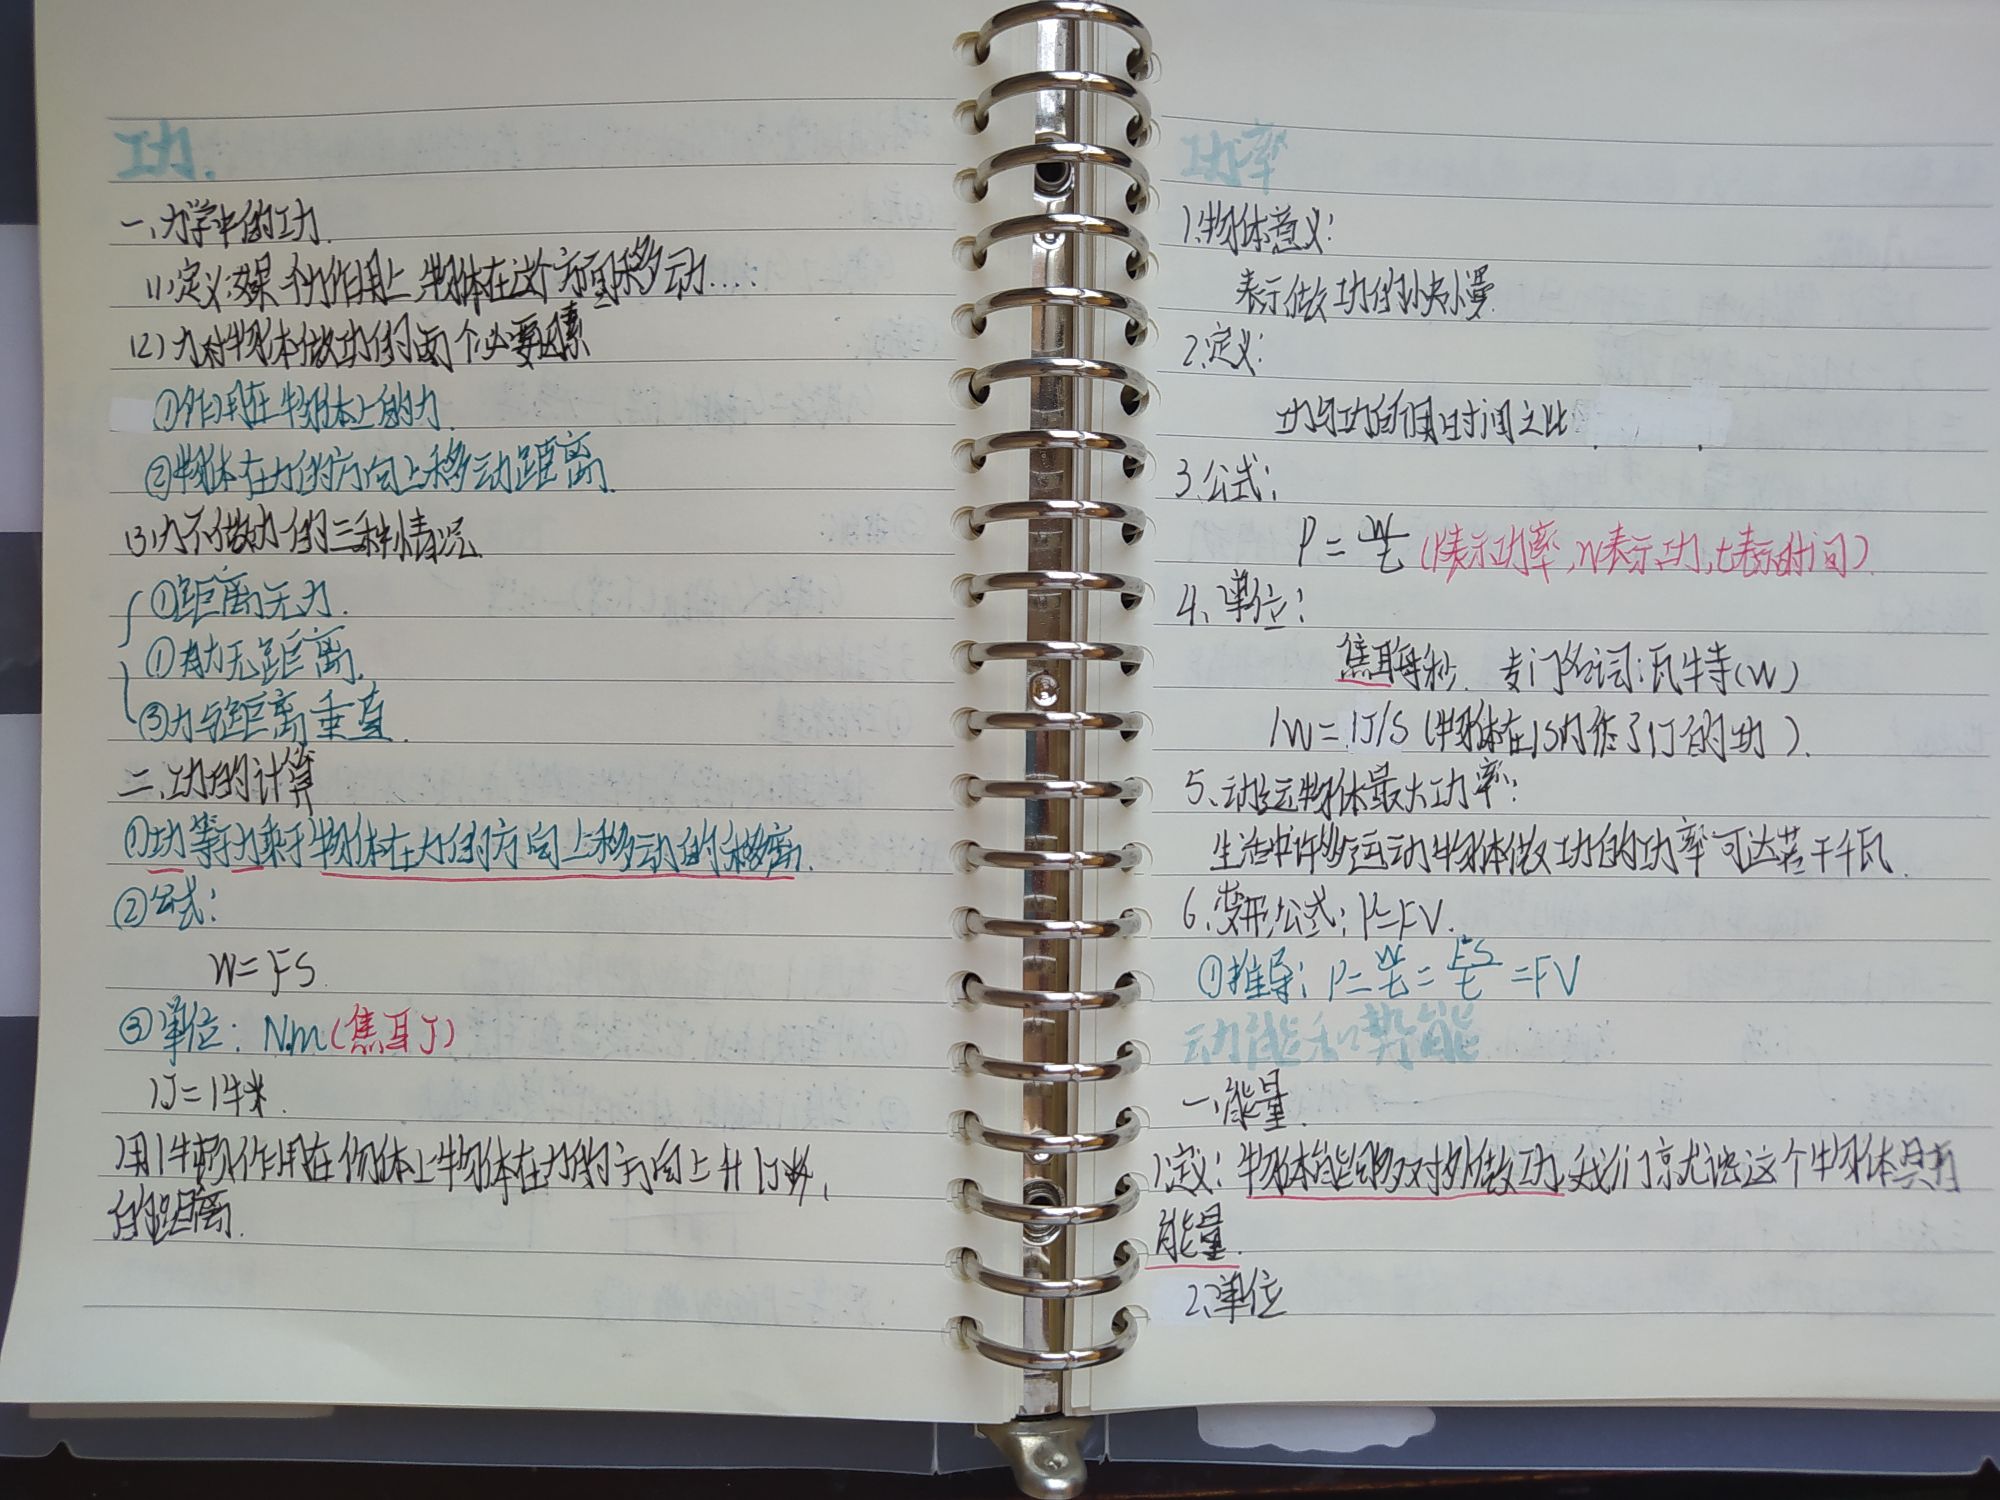 功.
一、力学中的功.
(1)定义:如果一个力作用上,物体在这个方向移动....:
(2)力对物体做功的两个必要因素
①作用在物体上的力.
②物体在力的方向上移动距离.
(3)力不做功的三种情况.
①距离无力.
①有力无距离.
③力与距离垂直.
二.功的计算
①功等于力乘于物体在力的方向上移动的移离.
②公式:
W=FS.
③单位: N.m(焦耳J)
1J=1牛米.
用1牛 作用在物体上物体在力的方向上升1 米,
的距离.
功率
1.物体意义:
表示做功的快慢.
2.定义:
功与功所用时间之比
3.公式:
P=W/t(P表示功率,W表示功,t表示时间).
4、单位:
焦耳每秒. 专门名词:瓦牛寺(W)
1W=1J/S(物体在1S内作了1J的功).
5、动运物体最大功率:
生活中许多运动物体做功的功率可达若干千瓦.
6.变形公式:P=FV.
①推导:P=W/t=FS/t=FV
动能和势能
一、能量.
1.定义:物体能够对外做功,我们就说这个物体具有
能量.
2、单位